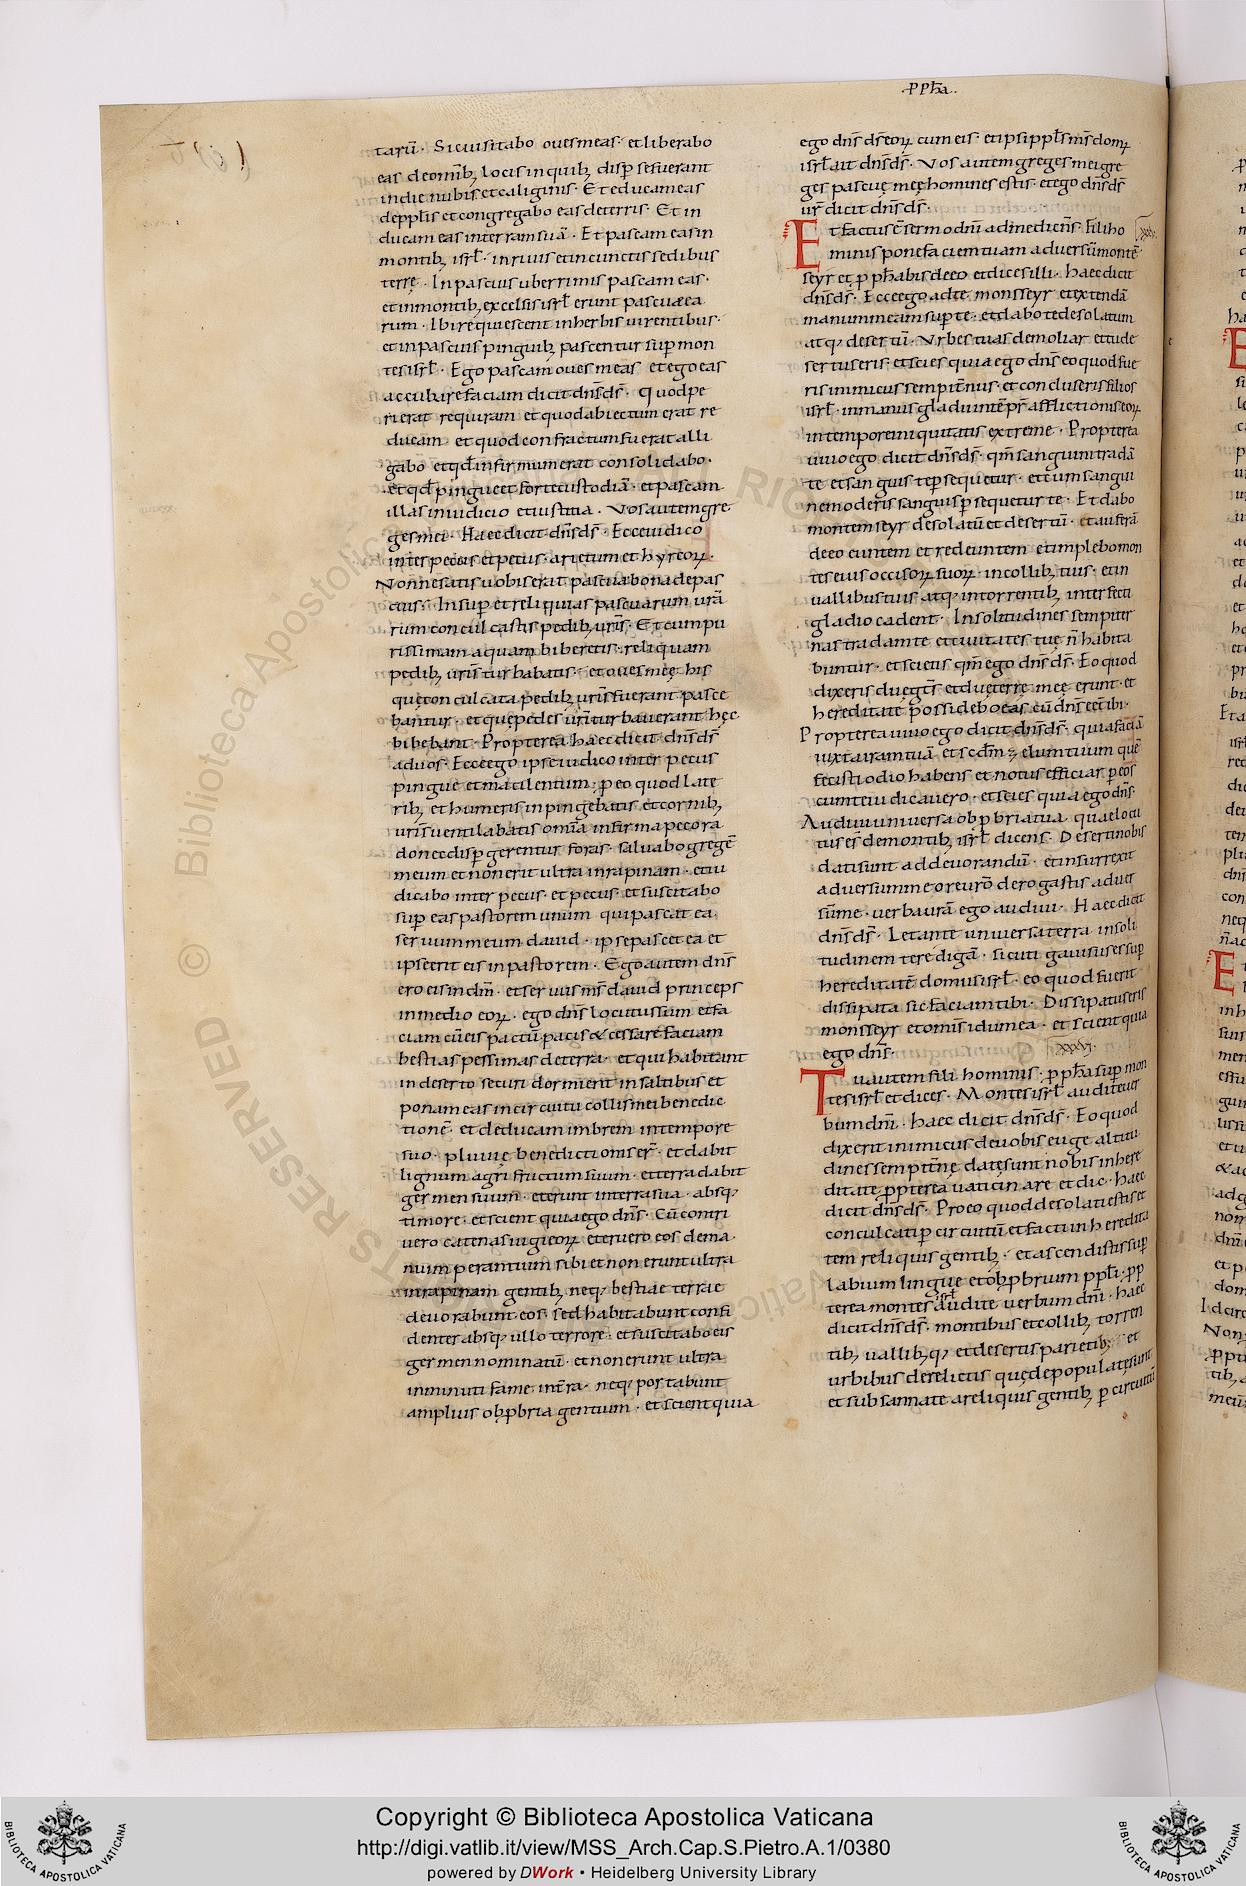 .ꝓpħa.
tarū. Sic visitabo oves meas. et liberabo
eas de omīb; locis in quib; disꝑse fuerant
in die nubis et caliginis. Et educam eas
de ppl̄is et congregabo eas de terris. Et in
ducam eas in terram suā. Et pascam eas in
montib; isrł. in rivis et in cunctis sedibus
terrę. In pascuis uberrimis pascam eas.
et in montib; excelsis isrł erunt pascua ea
rum. Ibi requiescent in herbis virentibus.
et in pascuis pinguib; pascentur suꝑ mon
tes isrł. Ego pascam oves meas et ego eas
accubare faciam dicit dn̄s d̄s. Quod pe
rierat requiram et quod abiectum erat re
ducam et quod confractum fuerat alli
gabo et qđ infirmum erat consolidabo.
et qđ pingue et forte custodiā. et pascam
illas in iudicio et iustitia. Vos autem gre
ges mei. Haec dicit dn̄s d̄s. Ecce iudico
inter pecus et pecus. arietum et hyrcoꝝ.
Nonne satis vobis erat pascua bona depas
cius. Insuꝑ et reliquias pascuarum urā
rum conculcastis pedib; uris. Et cum pu
rissimam aquam biberetis. reliquam
pedib; uris turbabatis. et oves meę his
quę conculcata pedib; uris fuerant pasce
bantur. et quę pedes uri turbaverant hęc
bibebant. Propterea haec dicit dn̄s d̄s
ad vos. Ecce ego ipse iudico inter pecus
pingue et macilentum. ꝑ eo quod late
rib; et humeris inpingebatis. et cornib;
uris ventilabatis omīa infirma pecora
donec disꝑgerentur foras. salvabo gregē
meum et non erit ultra in rapinam. et iu
dicabo inter pecus. et pecus. et suscitabo
suꝑ eas pastorem unum qui pascat ea
servum meum david. ipse pascet ea et
ipse erit eis in pastorem. Ego autem dn̄s
ero eis in dm̄. et servus ms̄ david princeps
in medio eoꝝ. ego dn̄s locutus sum et fa
ciam cū eis pactū pacis & cessare faciam
bestias pessimas de terra. et qui habitant
in deserto securi dormient in saltibus et
ponam eas in circuitu collis mei benedic
tionē. et deducam imbrem in tempore
suo. pluvię benedictionis er̄. et dabit
lignum agri fructum suum. et terra dabit
germen suum. et erunt in terra sua. absq;
timore. et scient quia ego dn̄s. Cū contri
vero catenas iugi eoꝝ et eruero eos de ma
nu imperantium sibi et non erunt ultra
in rapinam gentib; neq; bestiae terrae
devorabunt eos. sed habitabunt confi
denter absq; ullo terrore. et suscitabo eis
germen nominatū. et non erunt ultra
inminuti fame in tr̄a. neq; portabunt
amplius obꝓbria gentium. et scient quia
ego dn̄s d̄s eoꝝ cum eis. et ipsi ppl̄s ms̄ domꝝ
isrł ait dn̄s d̄s. Vos autem greges mei gre
ges pascuę meę homines estis. et ego dn̄s d̄s
ur̄ dicit dn̄s d̄s.
Et factus ē sermo dn̄i ad me dicens. Fili ho
xxxv.
minis pone faciem tuam adversū montē
seyr et ꝓphabis de eo et dices illi. Haec dicit
dn̄s d̄s. Ecce ego ad te mons seyr et extendā
manum meam suꝑ te. et dabo te desolatum
atq; desertū. Urbes tuas demoliar et tu de
sertus eris. et scies quia ego dn̄s eo quod fue
ris inimicus sempiternus. et concluseris filios
isrł. in manus gladii in tēpr̄ afflictionis eoꝝ
in tempore iniquitatis extreme. Propterea
vivo ego dicit dn̄s d̄s. qm̄ sanguini tradā
te et sanguis te ꝑsequetur. et cum sangui
nem oderis sanguis ꝑsequetur te. Et dabo
montem seyr desolatū et desertū. et auferā
de eo euntem et redeuntem et implebo mon
tes eius occisoꝝ suoꝝ. in collib; tuis. et in
vallibus tuis atq; in torrentib; interfecti
gladio cadent. In solitudines sempiter
nas tradam te et civitates tuę n̄ habita
buntur. et scietis qm̄ ego dn̄s d̄s. Eo quod
dixeris duę gtes et duę terrę meę erunt. et
hereditate possidebo eas. cū dn̄s eēt ibi.
Propterea vivo ego dicit dn̄s d̄s. quia faciā
iuxta iram tuā et scdm̄ zelum tuum quē
fecisti odio habens et notus efficiar ꝑ eos
cum te iudicavero. et scies quia ego dn̄s.
Audivi universa obꝓbria tua quae locu
tus es de montib; isrł dicens. Deserti nobis
dati sunt ad devorandū. et insurrexit
adversum me ore urō derogastis adver
sū me. verba urā ego audivi. Haec dicit
dn̄s d̄s. Letante universa terra in soli
tudinem te redigā. sicuti gavisus es suꝑ
hereditatē domus isrł. eo quod fuerit
dissipata sic faciam tibi. Dissipatus eris
mons seyr et omis̄ idumea. et scient quia
ego dn̄s.
xxxvi.
Tu autem fili hominis. ꝓpħa suꝑ mon
tes isrł et dices. Montes isrł audite ver
bum dn̄i. haec dicit dn̄s d̄s. Eo quod
dixerit inimicus de vobis euge altitu
dines sempitn̄ę datę sunt nobis in here
ditate ꝓpterea vaticinare et dic. haec
dicit dn̄s d̄s. Pro eo quod desolati estis et
conculcati ꝑ circuitū et facti in heredita
tem reliquis gentib;. et ascendistis suꝑ
labium lingue et obꝓbrium ppl̄i. ꝓp
terea montes isrł audite verbum dn̄i. haec
dicit dn̄s d̄s. montibus et collib; torren
tib; vallib;q; et desertis parietib; et
urbibus derelictis quę depopulatę sunt
et subsannate a reliquis gentib; ꝑ circuitū
Copyright © Biblioteca Apostolica Vaticana
http://digi.vatlib.it/view/MSS_Arch.Cap.S.Pietro.A.1/0380
powered by DWork • Heidelberg University Library